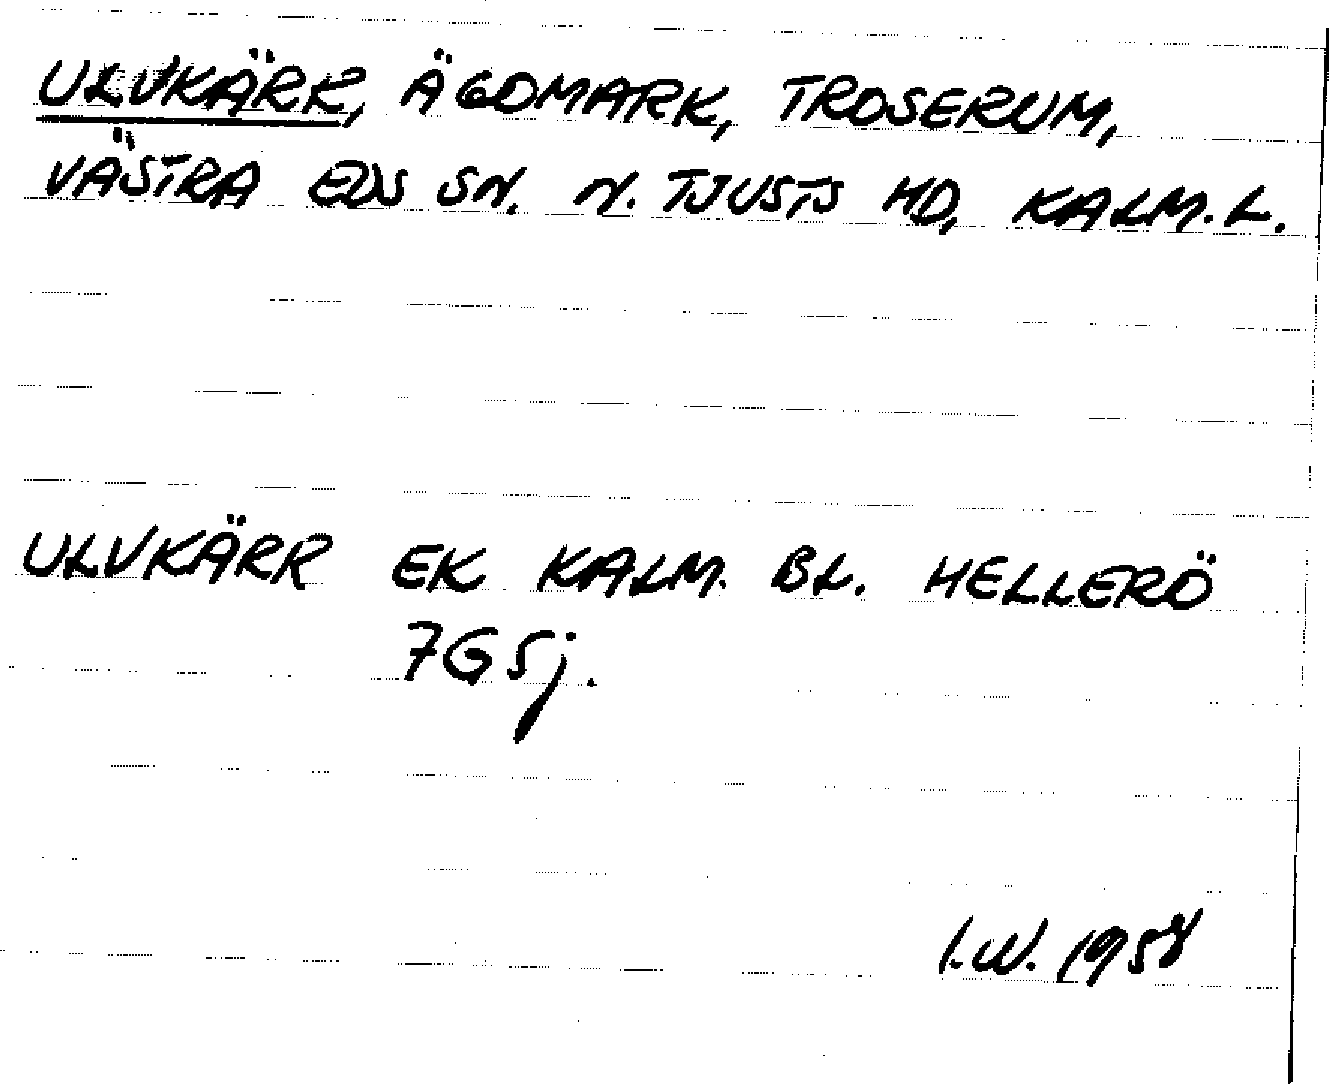 ULVKÄRR, ÄGOMARK, TROSERUM,
VÄSTRA EDS SN. N. TJUSTS HD, KALM. L.
ULVKÄRR EK KALM. BL. HELLERÖ
7G5j.
I.W. 1958